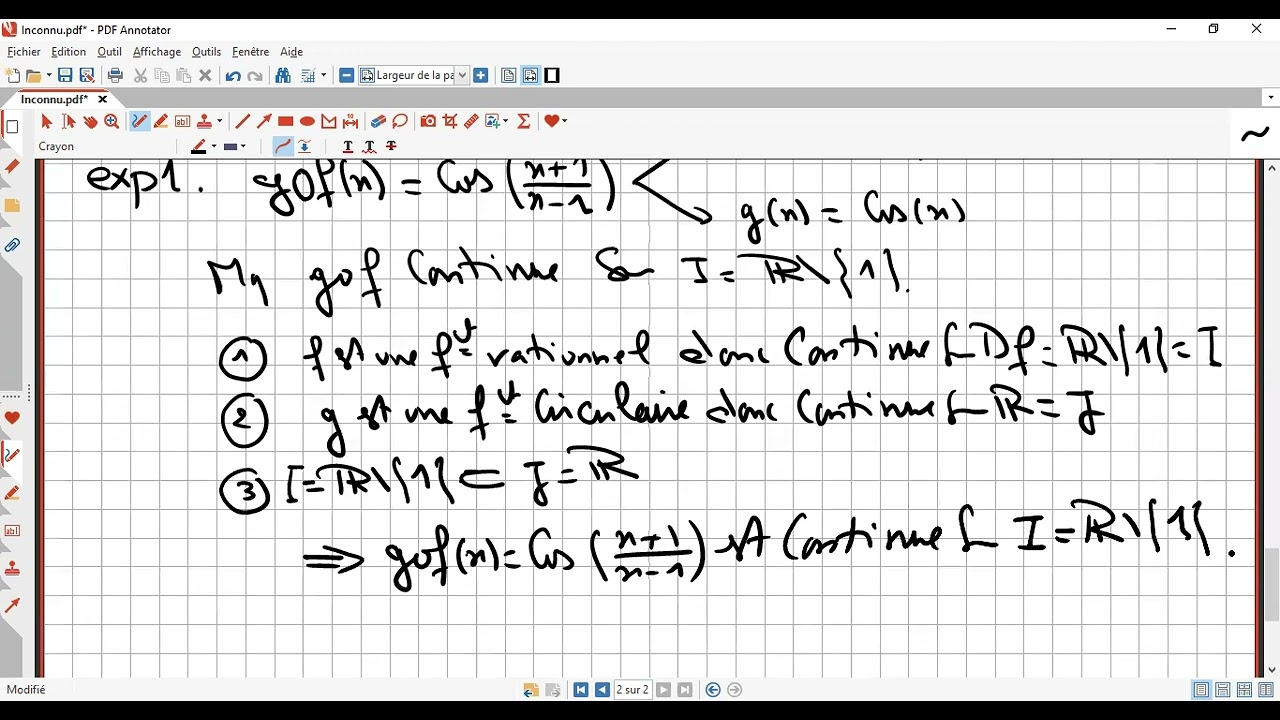 Inconnu.pdf* - PDF Annotator
Fichier Edition Outil Affichage Outils Fenêtre Aide
Largeur de la pa
Inconnu.pdf*
Crayon
exp1. gof(x) = Cos (x+1/x-1)
g(x) = Cos(x)
Mq gof Continue sur I = ℝ\{1}.
① f est une fct rationnel donc Continue sur Df = ℝ\{1} = I
② g est une fct Circulaire donc Continue sur ℝ = J
③ I = ℝ\{1} ⊂ J = ℝ
⇒ gof(x) = Cos (x+1/x-1) est Continue sur I = ℝ\{1}.
Modifié
2 sur 2